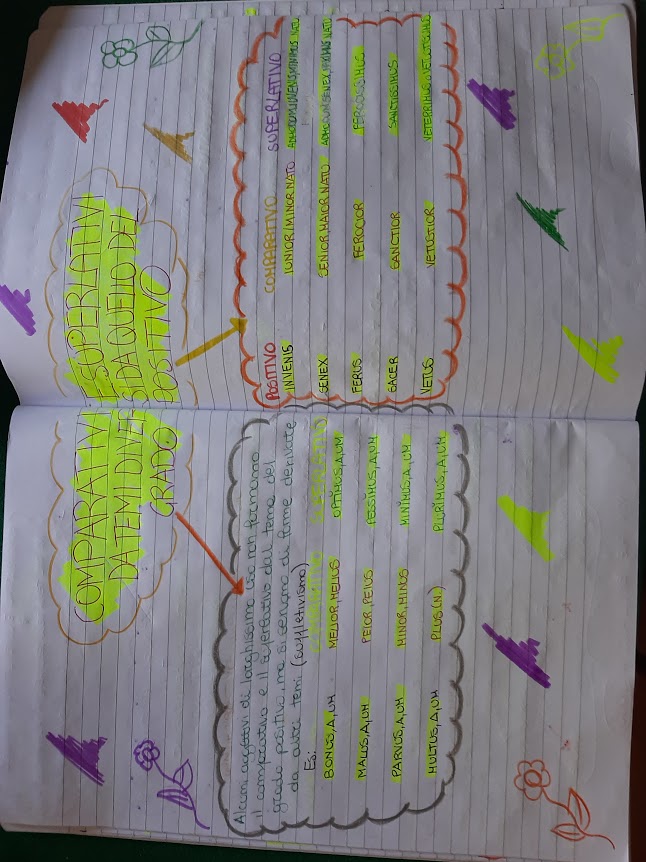 COMPARATIVI E SUPERLATIVI
DA TEMI DIVERSI DA QUELLO DEL
GRADO POSITIVO
Alcuni aggettivi di larghissimo uso non formano
il comparativo e il superlativo dal tema del
grado positivo, ma si servono di forme derivate
da altri temi (suppletivismo)
Es: COMPARATIVO SUPERLATIVO
BONUS, A, UM MELIOR, MELIUS OPTIMUS, A, UM
MALUS, A, UM PEIOR, PEIUS PESSIMUS, A, UM
PARVUS, A, UM MINOR, MINUS MINIMUS, A, UM
MULTUS, A, UM PLUS (N.) PLURIMUS, A, UM
POSITIVO COMPARATIVO SUPERLATIVO
IUNIOR/MINOR NATO
SENEX SENIOR, MAIOR NATO
FERUS FEROCIOR FEROCISSIMUS
SACER SANCTIOR SANCTISSIMUS
VETUS VETUSTIOR